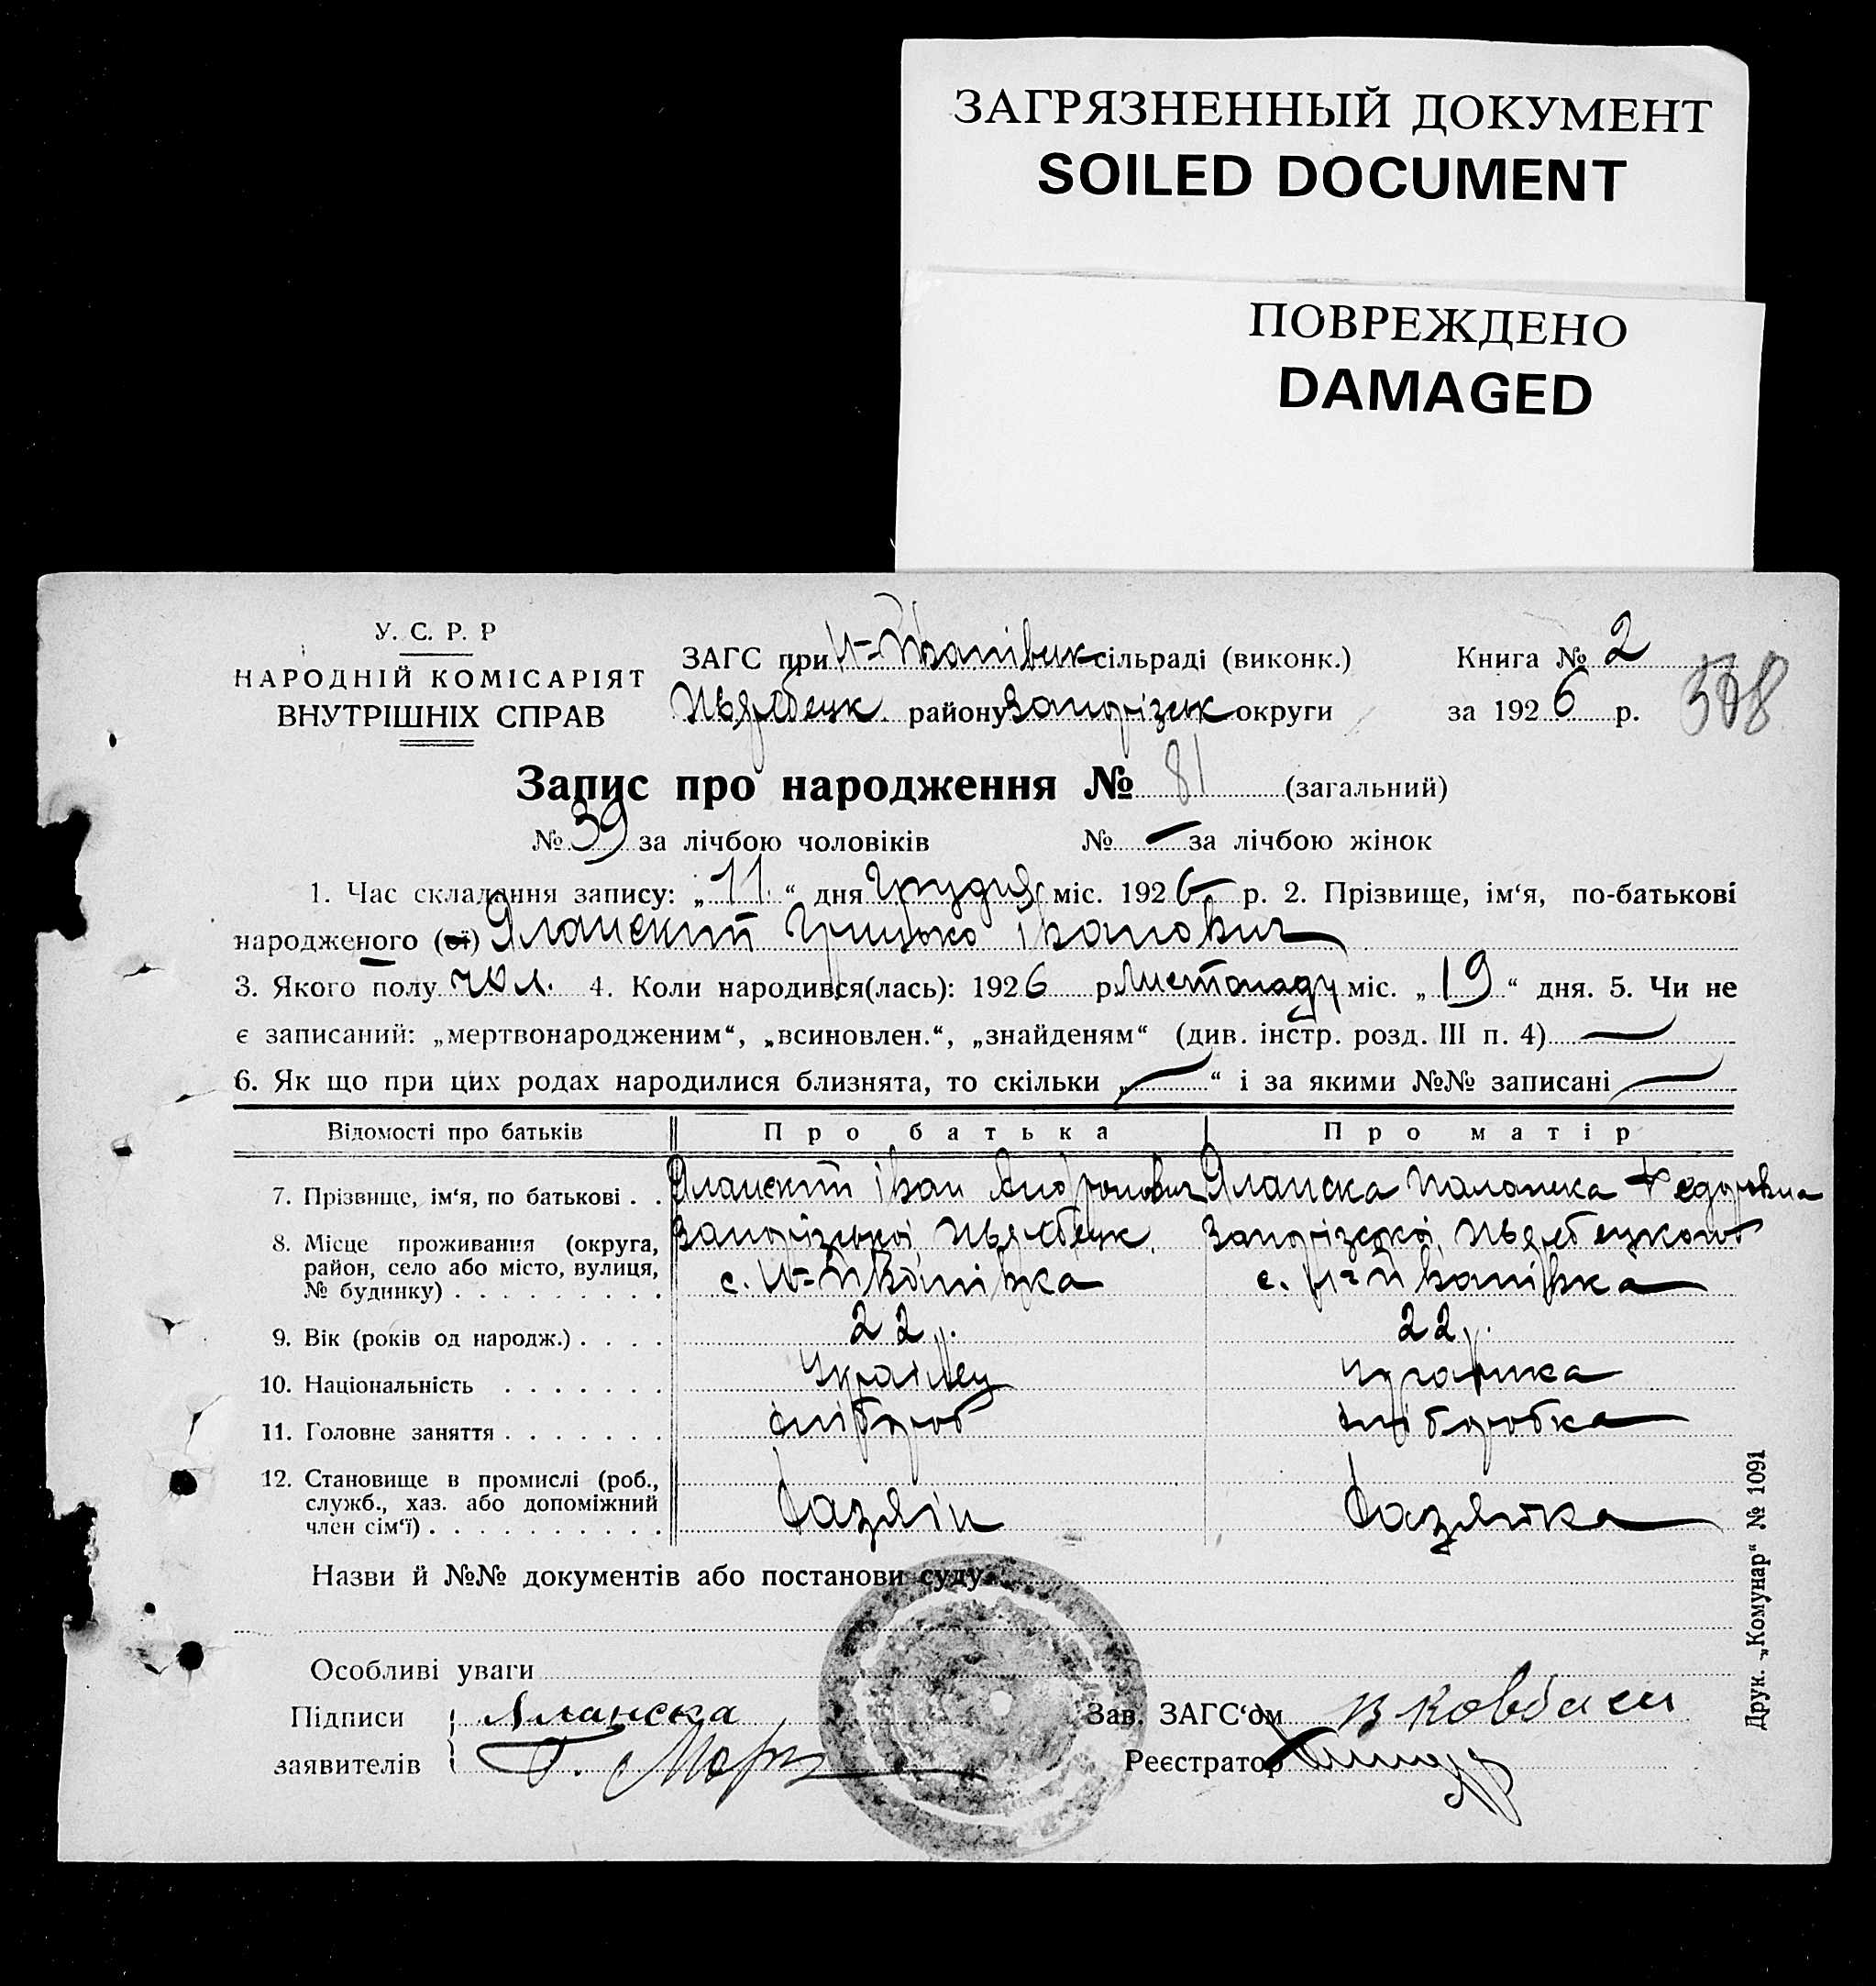 ЗАГРЯЗНЕННЫЙ ДОКУМЕНТ
SOILED DOCUMENT
ПОВРЕЖДЕНО
DAMAGED
У. С. Р. Р
НАРОДНІЙ КОМІСАРІЯТ
ВНУТРІШНІХ СПРАВ
ЗАГС при сільраді (виконк.)
району Запорізьк округи
Книга № 2
за 1926 р.
Запис про народження № 81 (загальний)
№ 39 за лічбою чоловіків № — за лічбою жінок
1. Час складання запису: „ 11 “ дня Грудня міс. 1926 р. 2. Прізвище, ім‘я, по-батькові
народженого (ої) Яланский Грицько Іванович
3. Якого полу чол. 4. Коли народився(лась): 1926 р. Листопаду міс. „ 19 “ дня. 5. Чи не
є записаний: „мертвонародженим“, „всиновлен.“, „знайденям“ (див. інстр. розд. III п. 4) —
6. Як що при цих родах народилися близнята, то скільки „ — “ і за якими №№ записані —
Відомості про батьків Про батька Про матір
7. Прізвище, ім‘я, по батькові . . Яланский Іван Яланска Палашка Федоровна
8. Місце проживання (округа,
район, село або місто, вулиця,
№ будинку) . . . . . . . . .
Запорізької
с.
Запорізкої
с.
9. Вік (років од народж.) . . . . 22 р. 22 р.
10. Національність . . . . . . . Українец
11. Головне заняття . . . . . . . хлібороб хліборобка
12. Становище в промислі (роб.,
служб., хаз. або допоміжний
член сім‘ї) . . . . . . . . . .
хазяїн хазяйка
Назви й №№ документів або постанови суду
Особливі уваги
Підписи Яланска
заявителів
Зав. ЗАГС‘ом
Реєстратор
Друк. „Комунар“ № 1091